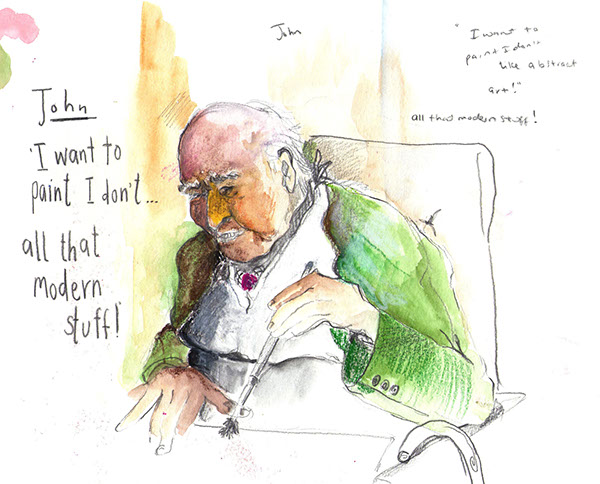 John
'I want to
paint I don't...
all that
modern
stuff!
John
"I want to
paint I don't
like abstract
art!"
all that modern stuff!